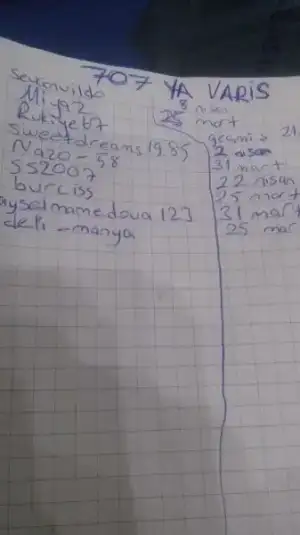 707 YA VARIS
sevonvildo
Miy92
Rukiye67
sweetdreams1985
Nazo-58
SS2007
burciss
ayselmamedova123
deli-manya
8 nisan
25 mart
2 nisan
31 mart
22 nisan
25 mart
31 mart
25 mar